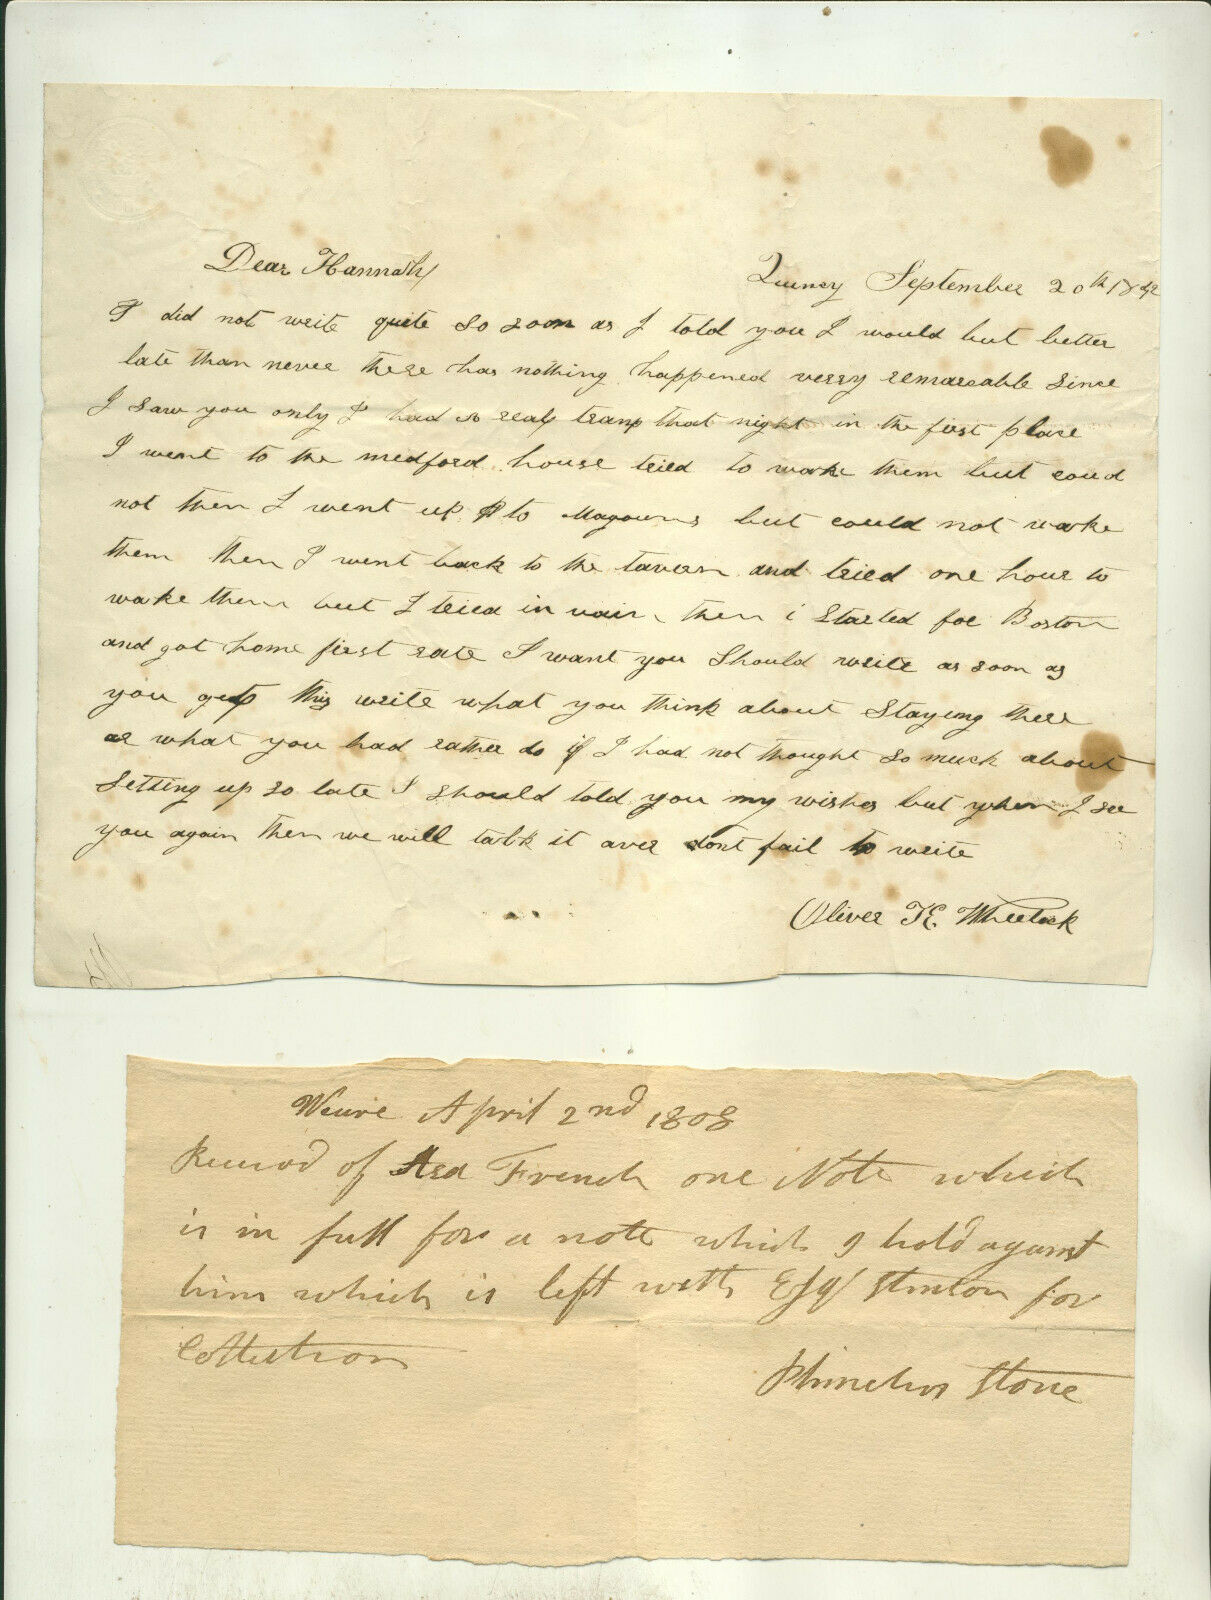 Dear Hannah/
Quincy September 20th 1842
I did not write quite so soon as I told you I would but better
late than never there has nothing happened verry remarcable since
I saw you only I had a real tramp that night in the first place
I went to the medford house tried to wake them but coud
not then I went up to Magouns but could not wake
them then I went back to the tavern and tried one hour to
wake them but I tried in vain then i started for Boston
and got home first rate I want you should write as soon as
you get this write what you think about staying there
or what you had rather do if I had not thought so much about
setting up so late I should told you my wishes but when I see
you again then we will talk it over dont fail to write
Oliver T.E. Wheelock
Weare April 2nd 1808
Receivd of Asa French one Note which
is in full for a note which I hold against
him which is left with Esqr Stinson for
Collection
Phinehas Stone